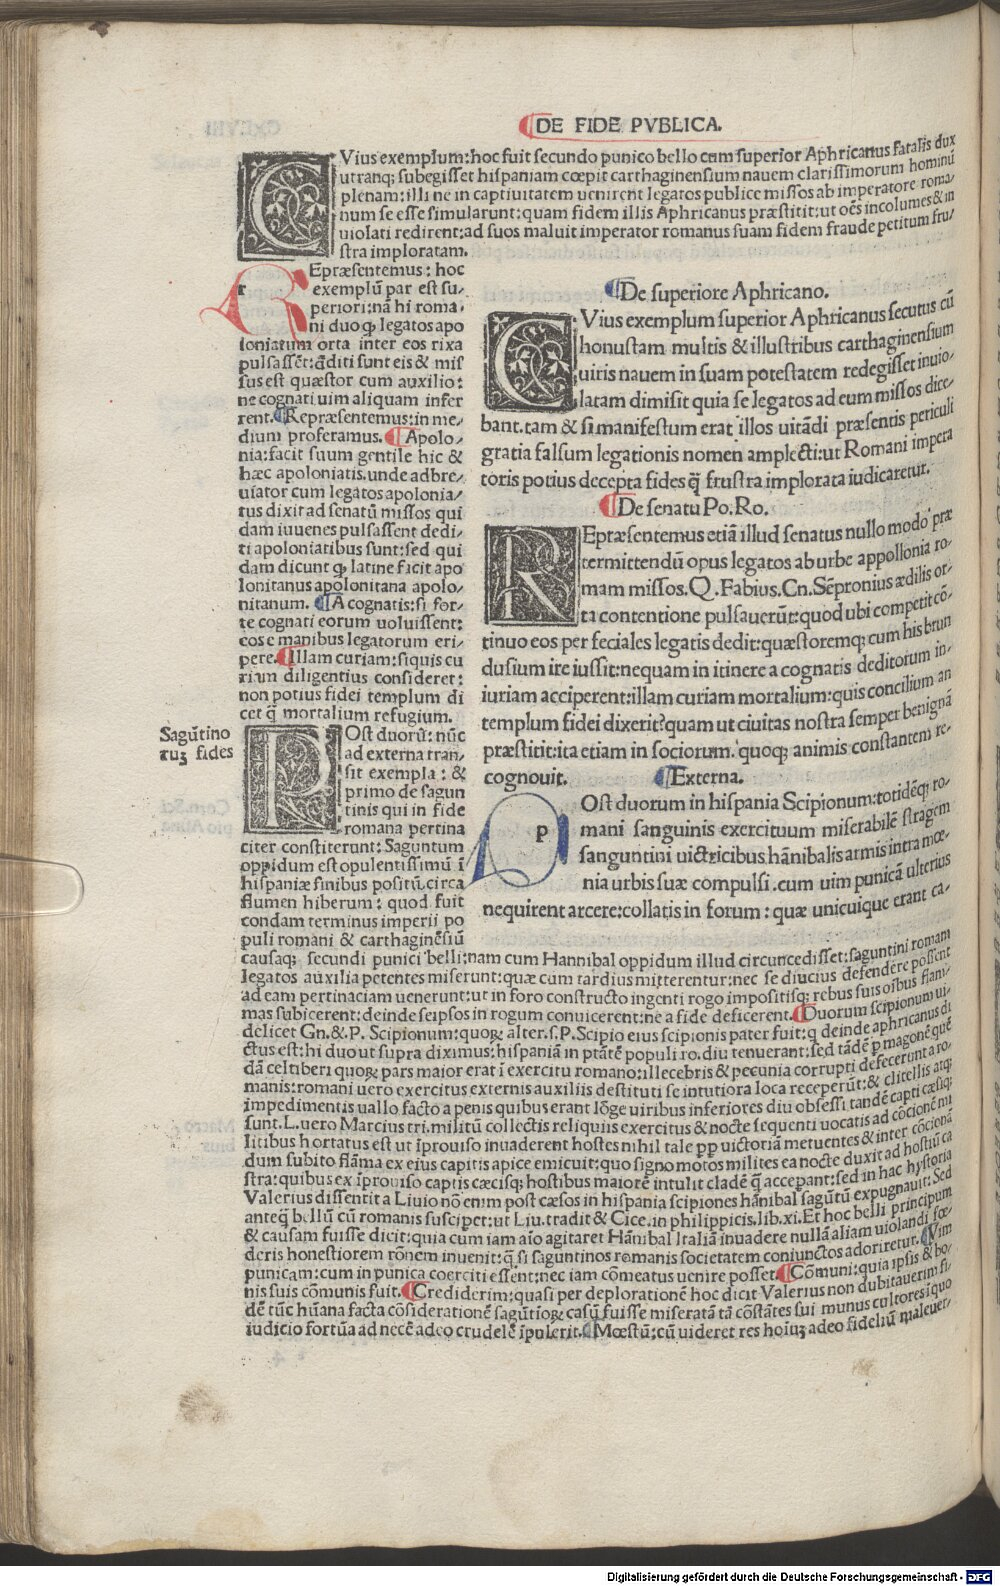 DE FIDE PVBLICA.
CVius exemplum: hoc fuit secundo punico bello cum superior Aphricanus fatalis dux
utranq; subegisset hispaniam cœpit carthaginensium nauem clarissimorum hominũ
plenam: illi ne in captiuitatem uenirent legatos publice missos ab imperatore roma/
num se esse simularunt: quam fidem illis Aphricanus præstitit: ut oẽs incolumes & in
uiolati redirent: ad suos maluit imperator romanus suam fidem fraude petitum fru/
stra imploratam.
REpræsentemus: hoc
exemplũ par est su/
periori: nã hi roma/
ni duo q; legatos apo
loniatum orta inter eos rixa
pulsassẽt: q̃diti sunt eis & mis
sus est quæstor cum auxilio:
ne cognati uim aliquam infer
rent. Repræsentemus: in me/
dium proferamus. Apolo/
nia: facit suum gentile hic &
hæc apoloniatis. unde adbre/
uiator cum legatos apolonia/
tus dixit ad senatũ missos qui
dam iuuenes pulsassent dedi/
ti apoloniatibus sunt: sed qui
dam dicunt q; latine facit apo
lonitanus apolonitana apolo/
nitanum. A cognatis: si for/
te cognati eorum uoluissent:
eos e manibus legatorum eri/
pere. Illam curiam: siquis cu
riam diligentius consideret:
non potius fidei templum di
cet q̃ mortalium refugium.
Sagũtino
ruꝫ fides
POst duorũ: nũc
ad externa tran/
sit exempla: &
primo de sagun
tinis qui in fide
romana pertina
citer constiterunt: Saguntum
oppidum est opulentissimũ ĩ
hispaniæ finibus positũ. circa
flumen hiberum: quod fuit
condam terminus imperii po
puli romani & carthaginẽsiũ
De superiore Aphricano.
CVius exemplum superior Aphricanus secutus cũ
honustam multis & illustribus carthaginensium
uiris nauem in suam potestatem redegisset inuio/
latam dimisit quia se legatos ad eum missos dice/
bant. tam & si manifestum erat illos uitãdi præsentis periculi
gratia falsum legationis nomen amplecti: ut Romani impera
toris potius decepta fides q̃ frustra implorata iudicaretur.
De senatu Po. Ro.
REpræsentemus etiã illud senatus nullo modo præ
termittendũ opus legatos ab urbe appollonia ro/
mam missos. Q. Fabius. Cn. Sẽpronius ædilis or/
ta contentione pulsauerũt: quod ubi competit cõ/
tinuo eos per feciales legatis dedit: quæstoremq; cum his brun
dusium ire iussit: nequam in itinere a cognatis deditorum in/
iuriam acciperent: illam curiam mortalium: quis concilium an
templum fidei dixerit? quam ut ciuitas nostra semper benignã
præstitit: ita etiam in sociorum. quoq; animis constantem re/
cognouit. Externa.
pOst duorum in hispania Scipionum: totidẽq; ro/
mani sanguinis exercituum miserabilẽ stragem
sanguntini uictricibus hãnibalis armis intra mœ/
nia urbis suæ compulsi. cum uim punicã ulterius
nequirent arcere: collatis in forum: quæ unicuique erant ca/
causaq; secundi punici belli: nam cum Hannibal oppidum illud circuncedisset: saguntini romam
legatos auxilia petentes miserunt: quæ cum tardius mitterentur: nec se diucius defendere possent
ad eam pertinaciam uenerunt: ut in foro constructo ingenti rogo impositisq; rebus suis oĩbus flam/
mas subicerent: deinde seipsos in rogum conuicerent: ne a fide deficerent. Duorum scipionum ui/
delicet Gn. & .P. Scipionum: quoꝝ alter .s. P. Scipio eius scipionis pater fuit: q deinde aphricanus di
ctus est: hi duo ut supra diximus: hispaniã in ptãtẽ populi ro. diu tenuerant: sed tãdẽ p magonẽ quẽ
dã celtiberi quoꝝ pars maior erat ĩ exercitu romano: illecebris & pecunia corrupti defecerunt a ro/
manis: romani uero exercitus externis auxiliis destituti se intutiora loca receperũt: & clitellis atq;
impedimentis uallo facto a penis quibus erant lõge uiribus inferiores diu obsessi tandẽ capti cæsiq;
sunt. L. uero Marcius tri. militũ collectis reliquiis exercitus & nocte sequenti uocatis ad cõcionẽ mi
litibus hortatus est ut ĩprouiso inuaderent hostes nihil tale pp uictoriã metuentes & inter cõcionã
dum subito flãma ex eius capitis apice emicuit: quo signo motos milites ea nocte duxit ad hostiũ ca
stra: quibus ex ĩprouiso captis cæcisq; hostibus maiorẽ intulit cladẽ q̃ accepant: sed in hac hystoria
Valerius dissentit a Liuio nõ enim post cæsos in hispania scipiones hãnibal sagũtũ expugnauit: Sed
anteq̃ bellũ cũ romanis susciperet: ut Liu. tradit & Cice. in philippicis. lib. xi. Et hoc belli principum
& causam fuisse dicit: quia cum iam aĩo agitaret Hãnibal Italiã inuadere nullã aliam uiolandi fœ/
deris honestiorem rõnem inuenit: q̃ si saguntinos romanis societatem coniunctos adoriretur. Vim
punicam: cum in punica coerciti essent: nec iam cõmeatus uenire posset. Cõmuni: quia ipsis & bo/
nis suis cõmunis fuit. Crediderim: quasi per deplorationẽ hoc dicit Valerius non dubitauerim fi/
dẽ tũc hũana facta cõsiderationẽ sagũtioꝝ casũ fuisse miseratã tã cõstãtes sui munus cultores: quo
iudicio fortũa ad necẽ adeo crudelẽ ĩpulerit. Mœstũ: cũ uideret res hoĩuꝫ adeo fideliũ maleuer/
Digitalisierung gefördert durch die Deutsche Forschungsgemeinschaft - DFG